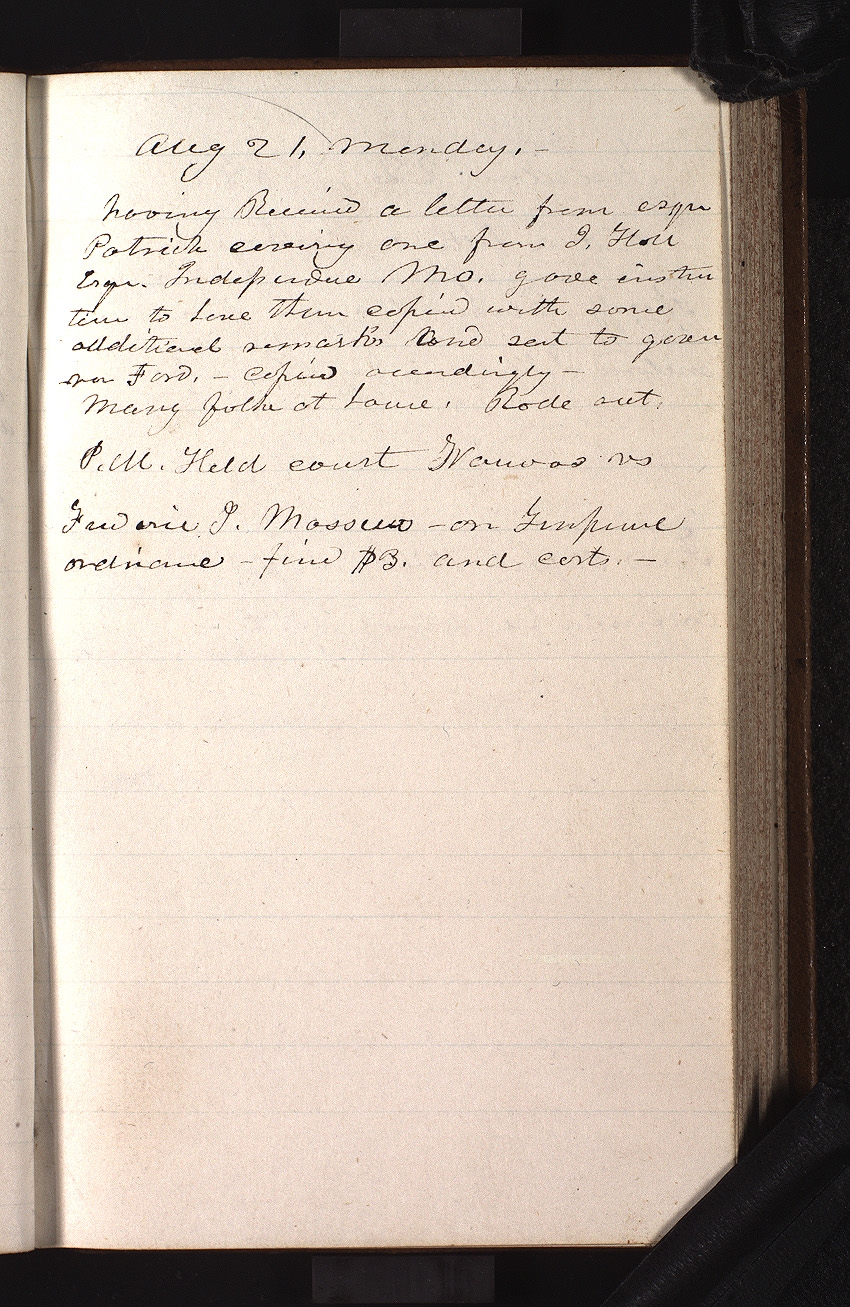 Aug 21, Monday. –
having Received a letter from esqr
Patrick covering one from J. Hall
Esqr. Independence Mo. gave instru
tion to have them copied with some
additional remarks and sent to gover
nor Ford. – copied accordingly –
many folks at home. Rode out.
P.M. Held court Nauvoo vs
Frederic J. – on Gunpowder
ordinance – fined $3. and costs. –